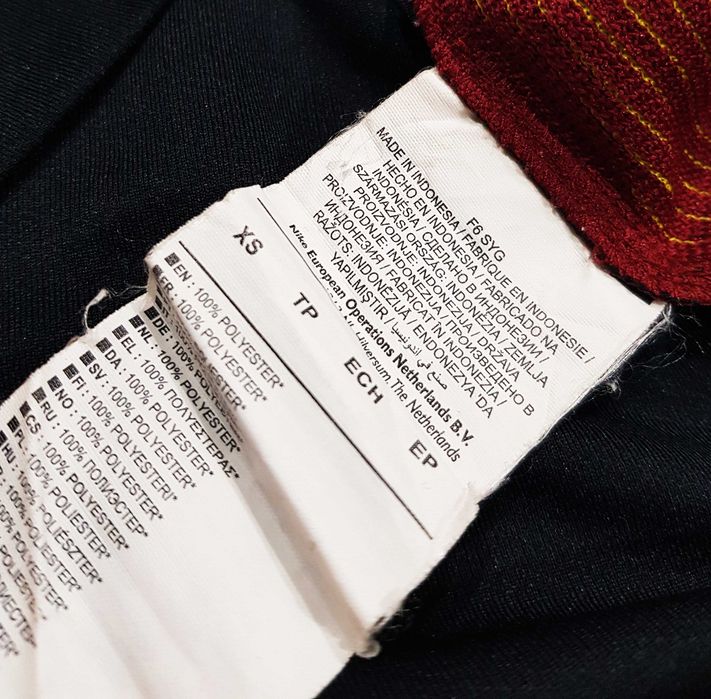 F6 SYG
MADE IN INDONESIA / FABRIQUE EN INDONESIE /
HECHO EN INDONESIA / FABRICADO NA
INDONÉSIA / СДЕЛАНО В ИНДОНЕЗИИ /
SZÁRMAZÁSI ORSZÁG: INDONÉZIA / ZEMLJA
PROIZVODNJE: INDONEZIJA / DRŽAVA
PROIZVODNJE: INDONEZIJA / ПРОИЗВЕДЕНО В
ИНДОНЕЗИЯ / FABRICAT IN INDONEZIA /
RAŽOTS: INDONĒZIJA / ENDONEZYA DA
YAPILMIŞTIR / صنع في اندونيسيا
Nike European Operations Netherlands B.V.
Hilversum, The Netherlands
XS TP ECH EP
EN: 100% POLYESTER*
FR: 100% POLYESTER*
100% POLYESTER*
DE: 100% POLYESTER*
NL: 100% POLYESTER*
EL: 100% ΠΟΛΥΕΣΤΕΡΑΣ*
DA: 100% POLYESTER*
SV: 100% POLYESTER*
FI: 100% POLYESTERI*
NO: 100% POLYESTER*
RU: 100% ПОЛИЭСТЕР*
CS: 100% POLYESTER*
100% POLIÉSZTER*
100% POLIESTER*